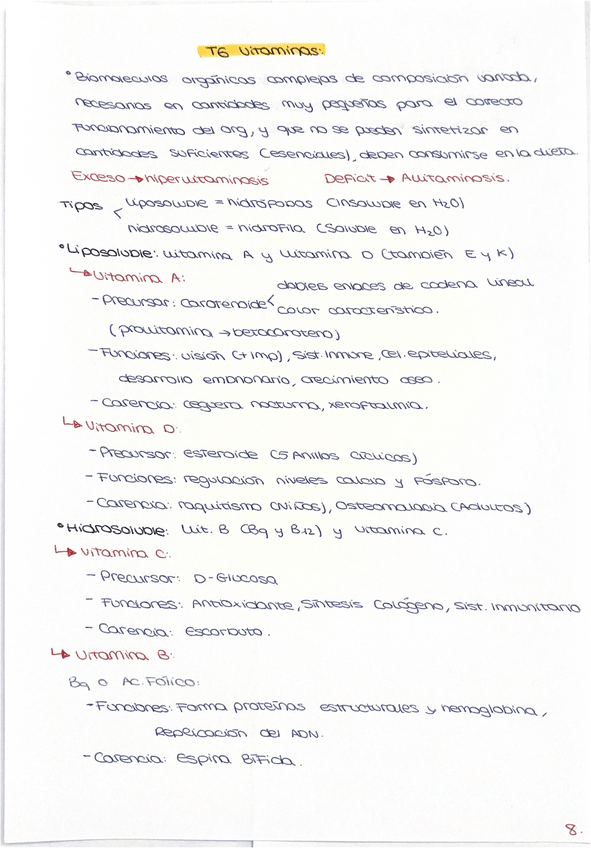 T6 Vitaminas:.
° Biomoléculas orgánicas complejas de composición variada,
necesarias en cantidades muy pequeñas para el correcto
Funcionamiento del org, y que no se pueden sintetizar en
cantidades suficientes (esenciales), deben consumirse en la dieta.
Exceso → hipervitaminosis Deficit → Avitaminosis.
Tipos < Liposoluble = hidrófobas (Insoluble en H2O)
hidrosoluble = hidrófila (Soluble en H2O)
° Liposoluble: Vitamina A y Vitamina D (también E y K)
↳ Vitamina A:
- Precursor: Carotenoide < dobles enlaces de cadena lineal
color característico.
(provitamina → betacaroteno)
- Funciones: visión (+ imp), Sist. Inmune, Cel. epiteliales,
desarrollo embrionario, crecimiento óseo.
- Carencia: ceguera nocturna, xeroftalmia.
↳ Vitamina D:
- Precursor: esteroide (5 Anillos cíclicos)
- Funciones: regulación niveles calcio y fósforo.
- Carencia: raquitismo (Niños), Osteomalacia (Adultos)
° Hidrosoluble: Vit. B (B9 y B12) y Vitamina C.
↳ Vitamina C:
- Precursor: D-Glucosa
- Funciones: Antioxidante, Síntesis Colágeno, Sist. Inmunitario
- Carencia: escorbuto.
↳ Vitamina B:
B9 o Ac. Fólico:
- Funciones: Forma proteínas estructurales y hemoglobina,
Replicación del ADN.
- Carencia: Espina Bífida.
8.